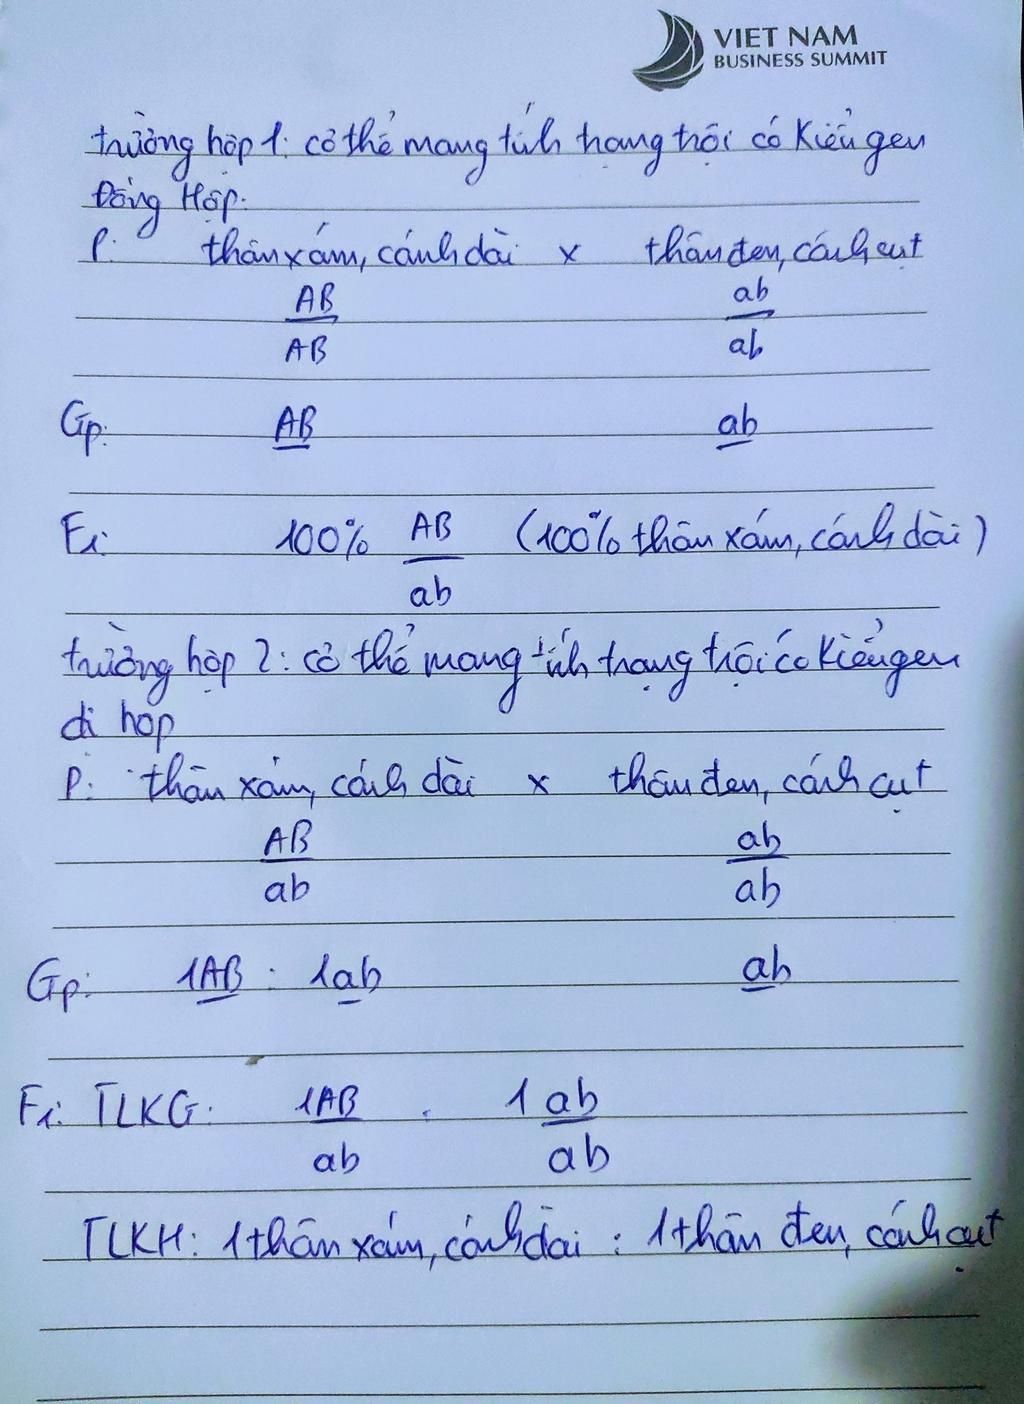 VIET NAM
BUSINESS SUMMIT
trường hợp 1: cơ thể mang tính trạng trội có kiểu gen
Đồng Hợp.
P: thân xám, cánh dài x thân đen, cánh cụt
AB ab
AB ab
Gp: AB ab
F1: 100% AB (100% thân xám, cánh dài)
ab
trường hợp 2: cơ thể mang tính trạng trội có kiểu gen
dị hợp
P: thân xám, cánh dài x thân đen, cánh cụt
AB ab
ab ab
Gp: 1AB : 1ab ab
F1: TLKG: 1AB : 1 ab
ab ab
TLKH: 1 thân xám, cánh dài : 1 thân đen, cánh cụt